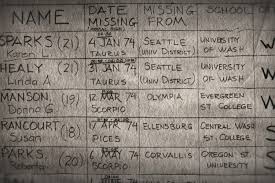 NAME DATE MISSING MISSING FROM SCHOOL OF
SPARKS (21) 4 JAN 74 SEATTLE UNIVERSITY
Karen L. TAURUS (UNIV DISTRICT) OF WASH
HEALY (21) 31 JAN 74 SEATTLE UNIVERSITY
Linda A. TAURUS (UNIV DISTRICT) OF WASH
MANSON, (19) 12 74 OLYMPIA EVERGREEN
Donna G. SCORPIO ST. COLLEGE
RANCOURT (18) 17 APR 74 ELLENSBURG CENTRAL WASH
Susan PICES ST COLLEGE
PARKS, (20) 6 74 CORVALLIS OREGON ST.
Roberta SCORPIO UNIVERSITY